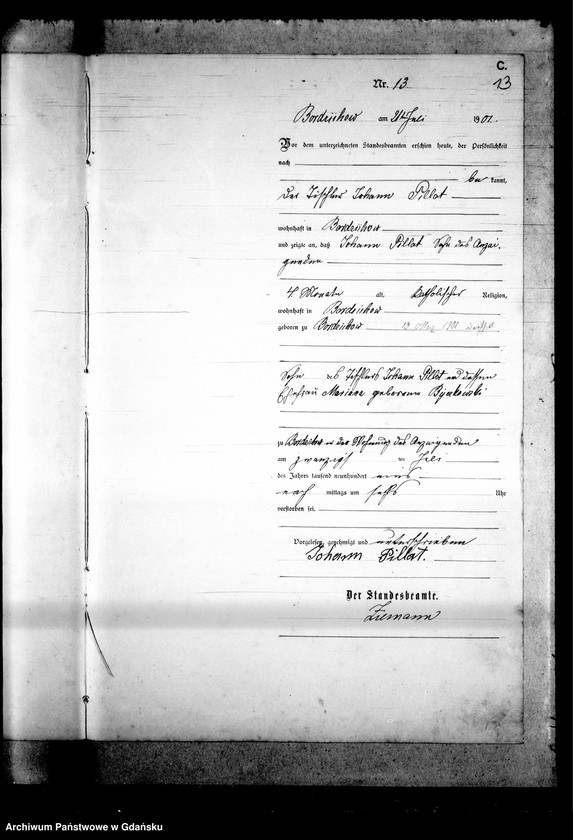 C.
Nr. 13.
13
Bordzichow am 21 ten Juli 1901.
Vor dem unterzeichneten Standesbeamten erschien heute, der Persönlichkeit
nach
be kannt,
der Tischler Johann Pillat
wohnhaft in Bordzichow
und zeigte an, daß Johann Pillat Sohn des Anzei-
genden
4 Monate alt, katholischer Religion,
wohnhaft in Bordzichow
geboren zu Bordzichow
Sohn des Tischlers Johann Pillat und dessen
Ehefrau Mariana geborene
zu Bordzichow in der Wohnung des Anzeigenden
am zwanzigst ten Juli
des Jahrs tausend neunhundert eins
nach mittags um sechs Uhr
verstorben sei.
Vorgelesen, genehmigt und unterschrieben
Johann Pillat.
Der Standesbeamte.
Ziemann
Archiwum Państwowe w Gdańsku